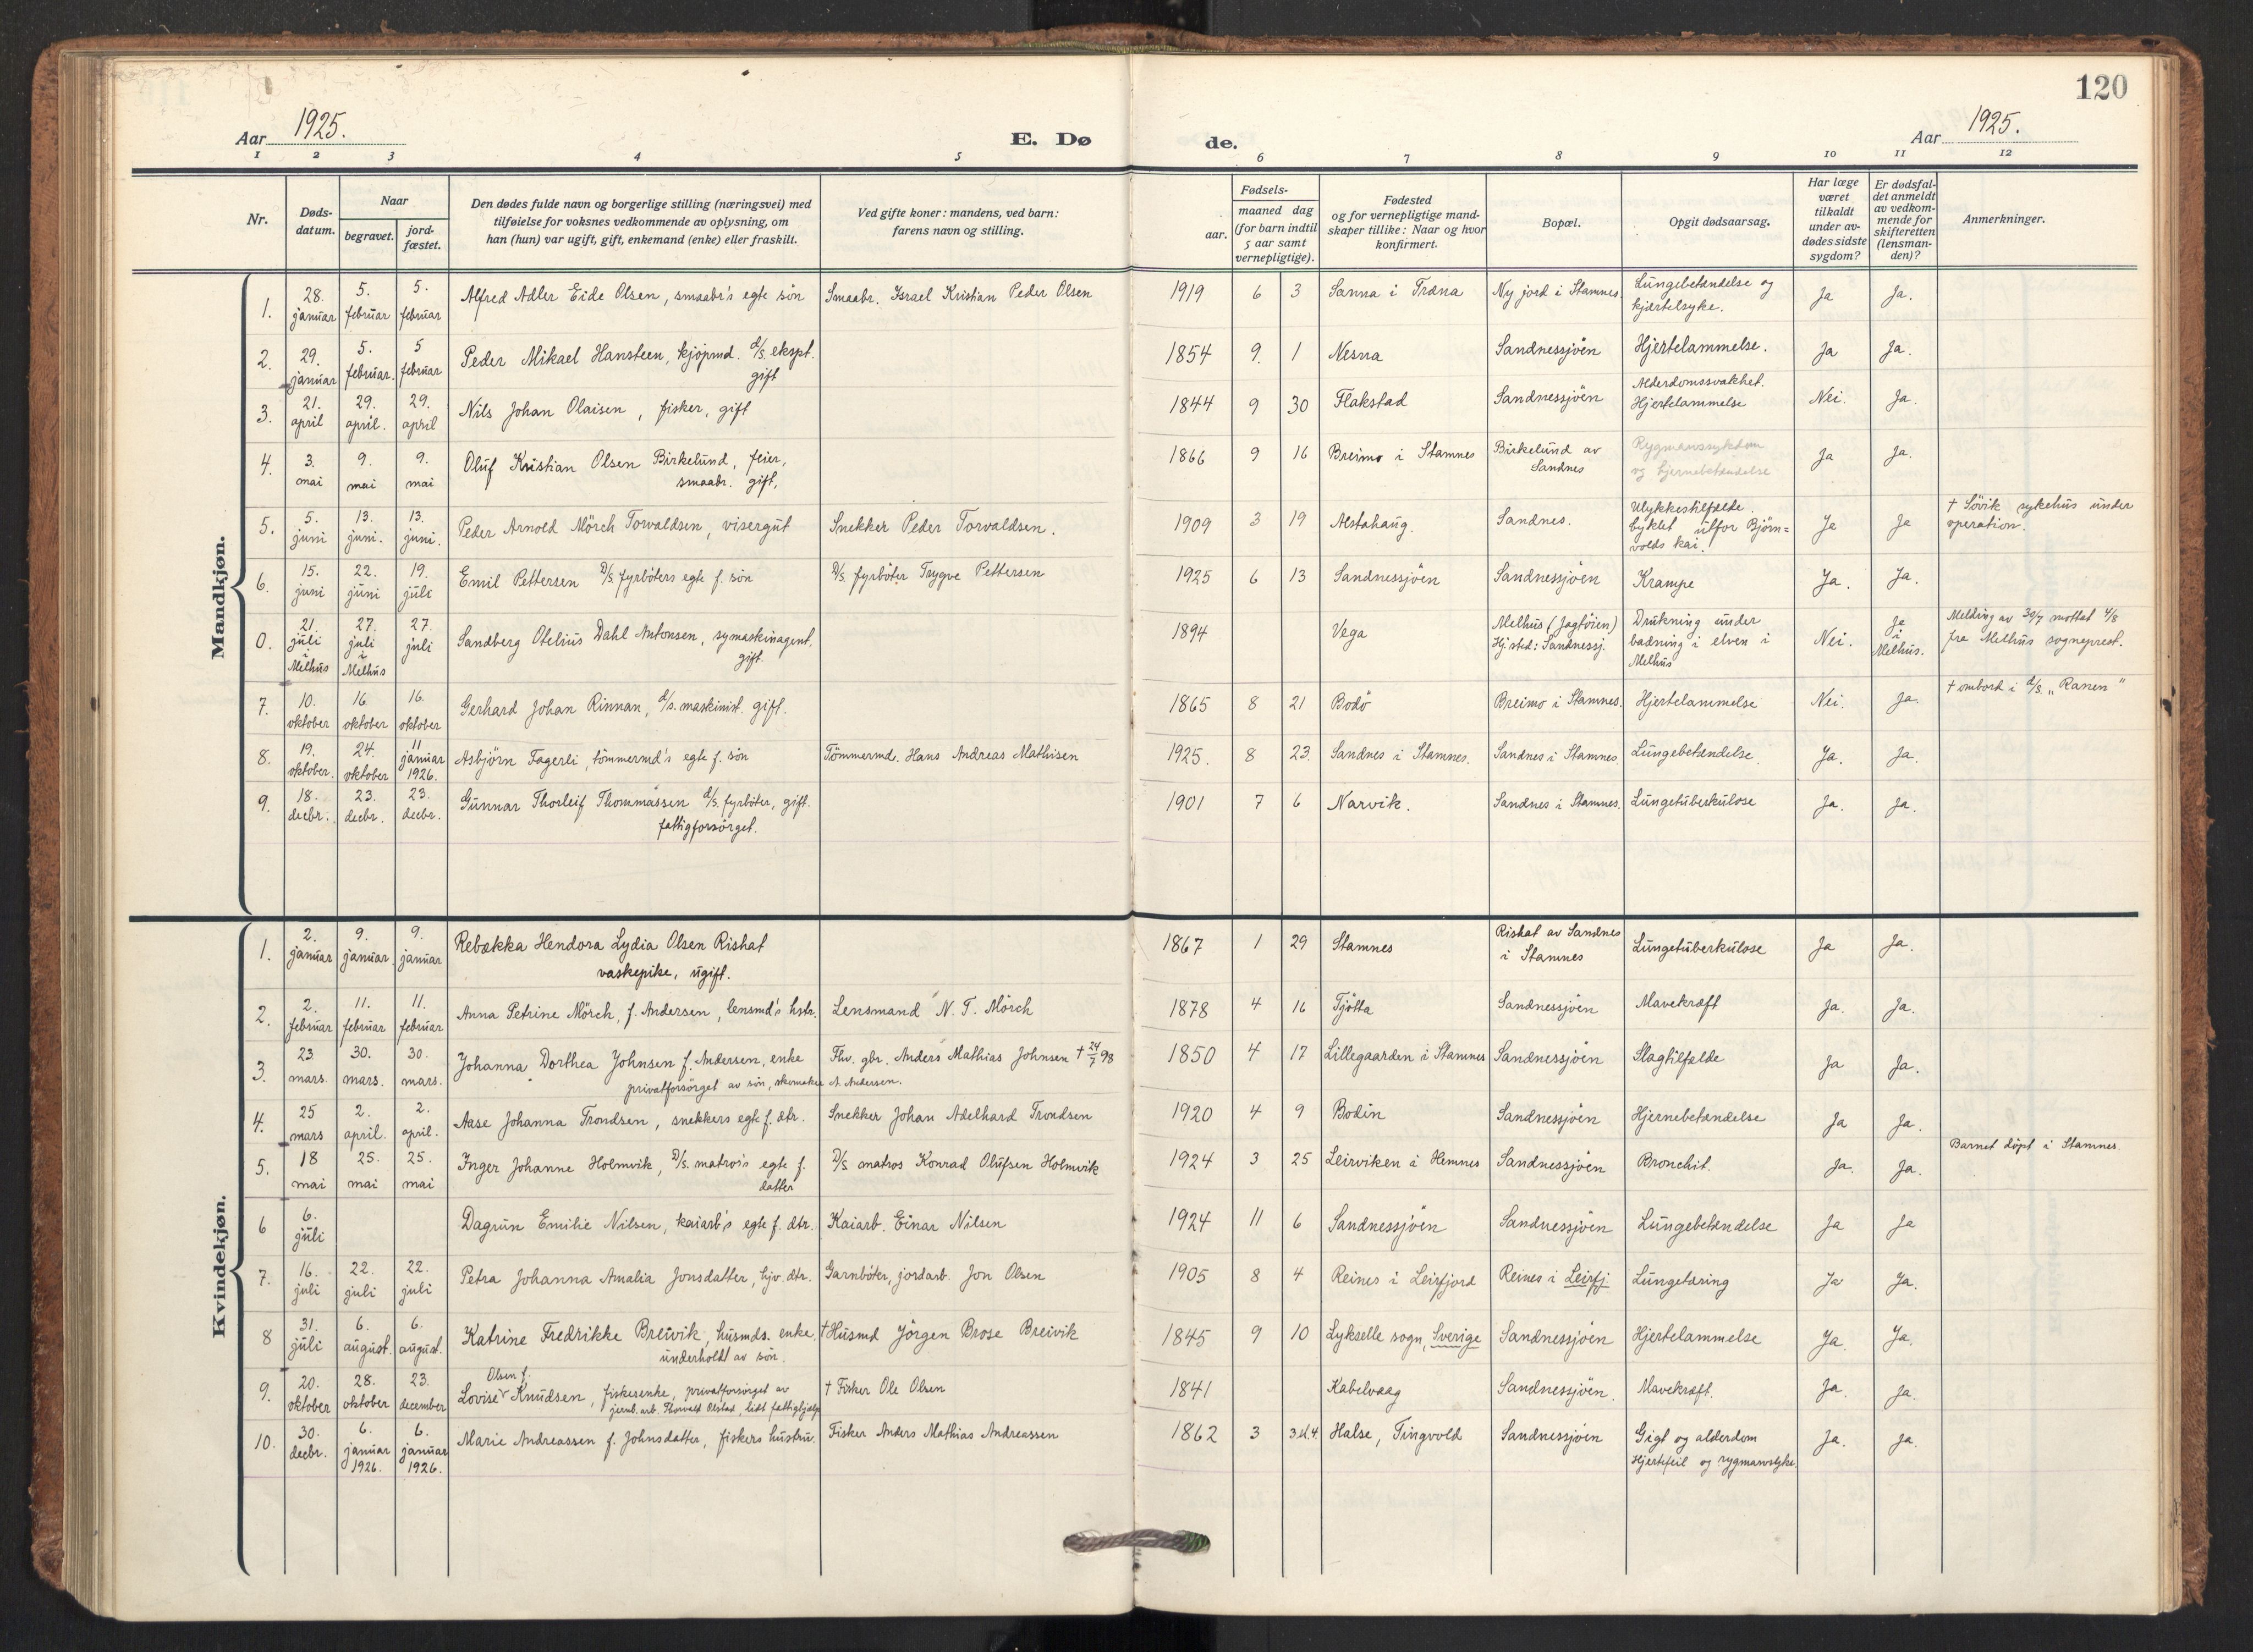 120
Aar 1925.
E. Dø
de.
Aar 1925.
1 2 3 4 5 6 7 8 9 10 11 12
Nr.
Døds-
datum.
Naar
begravet.
jord-
fæstet.
Den dødes fulde navn og borgerlige stilling (næringsvei) med
tilføielse for voksnes vedkommende av oplysning, om
han (hun) var ugift, gift, enkemand (enke) eller fraskilt.
Ved gifte koner: mandens, ved barn:
farens navn og stilling.
Fødsels-
aar.
maaned dag
(for barn indtil
5 aar samt
vernepligtige).
Fødested
og for vernepligtige mand-
skaper tillike: Naar og hvor
konfirmert.
Bopæl.
Opgit dødsaarsag.
Har læge
været
tilkaldt
under av-
dødes sidste
sygdom?
Er dødsfal-
det anmeldt
av vedkom-
mende for
skifteretten
(lensman-
den)?
Anmerkninger.
Mandkjøn.
1. 28. januar 5. februar 5. februar Alfred Adler Eide Olsen, smaabr's egte søn Smaabr. Israel Kristian Peder Olsen 1919 6 3 Sanna i Træna Ny jord i Stamnes. Lungebetændelse og
kjertelsyke. Ja Ja.
2. 29. januar 5. februar. 5 februar Peder Mikael Hansteen, kjøpmd. d/s. ekspt.
gift 1854 9. 1 Nesna Sandnessjøen Hjertelammelse. Ja Ja.
3. 21. april 29. april. 29. april Nils Johan Olaisen, fisker, gift 1844 9 30 Flakstad Sandnessjøen Alderdomssvakhet.
Hjertelammelse Nei. Ja.
4. 3. mai 9. mai 9. mai Oluf Kristian Olsen Birkelund, feier,
smaabr. gift, 1866 9 16 Breimo i Stamnes Birkelund av
Sandnes Rygmarvssykdom
og hjernebetændelse Ja Ja.
5. 5. juni 13. juni. 13. juni. Peder Arnold Mörch Torvaldsen, visergut Snekker Peder Torvaldsen. 1909 3 19 Alstahaug. Sandnes. Ulykkestilfælde.
Syklet utfor Bjørn=
volds kai. Ja Ja † Søvik sykehus under
operation.
6. 15. juni 22. juni 19. juli Emil Pettersen D/s. fyrbøters egte f. søn D/s. fyrbøter Trygve Pettersen 1925 6 13 Sandnessjøen Sandnessjøen Krampe Ja. Ja.
0. 21. juli i Melhus 27. juli i Melhus 27. juli Sandberg Otelius Dahl Antonsen, symaskinagent,
gift. 1894 Vega Melhus (Jagtöien)
Hj.sted: Sandnessj. Drukning under
badning i elven i
Melhus Nei. Ja i Melhus. Melding av 30/7 mottat 4/8
fra Melhus sogneprest.
7. 10. oktober 16. oktober 16. oktober Gerhard Johan Rinnan, d/s. maskinist. gift. 1865 8 21 Bodø Breimo i Stamnes. Hjertelammelse Nei. Ja. † ombord i d/s. „Ranen"
8. 19. oktober. 24. oktober 11 januar 1926. Asbjørn Fagerli, tømmermd's egte f. søn Tømmermd. Hans Andreas Mathisen 1925. 8 23. Sandnes i Stamnes. Sandnes i Stamnes. Lungebetændelse. Ja. Ja.
9. 18. decbr. 23. decbr. 23. decbr. Gunnar Thorleif Thommassen d/s. fyrbøter, gift.
fattigforsørget. 1901 7 6 Narvik. Sandnes i Stamnes. Lungetuberkulose Ja. Ja.
Kvindekjøn.
1. 2. januar 9. januar. 9. januar Rebækka Hendora Lydia Olsen Rishat
vaskepike, ugift. 1867 1 29 Stamnes Rishat av Sandnes
i Stamnes Lungetuberkulose Ja Ja.
2. 2. februar 11. februar 11. februar Anna Petrine Mörch, f. Andersen, lensmd's hstr. Lensmand N. T. Mörch 1878 4 16 Tjøtta Sandnessjøen Mavekræft Ja. Ja.
3. 23 mars. 30. mars. 30. mars. Johanna Dorthea Johnsen f. Andersen, enke
privatforsørget av søn, skomaker A. Andersen. Fhv. gbr. Anders Mathias Johnsen † 24/7 98 1850 4 17 Lillegaarden i Stamnes Sandnessjøen Slagtilfælde Ja Ja.
4. 25 mars 2. april. 2. april. Aase Johanna Trondsen, snekkers egte f. dtr. Snekker Johan Adelhard Trondsen 1920 4 9 Bodin Sandnessjøen Hjernebetændelse Ja Ja.
5. 18 mai 25. mai 25. mai Inger Johanne Holmvik, D/s. matros's egte f.
datter D/s. matros Konrad Olufsen Holmvik 1924 3 25 Leirviken i Hemnes Sandnessjøen Bronchit. Ja. Ja. Barnet döpt i Stamnes.
6 6. juli Dagrun Emilie Nilsen, kaiarb's egte f. dtr. Kaiarb. Einar Nilsen 1924 11 6 Sandnessjøen Sandnessjøen Lungebetændelse Ja Ja
7. 16. juli 22. juli 22. juli Petra Johanna Amalia Jonsdatter, hjv. dtr. Garnbøter, jordarb. Jon Olsen 1905 8 4 Reines i Leirfjord Reines i Leirfj. Lungetæring Ja Ja.
8 31. juli 6. august. 6. august. Katrine Fredrikke Breivik, husmds. enke.
underholdt av søn. † Husmd Jørgen Brose Breivik 1845 9 10 Lykselle sogn, Sverige Sandnessjøen Hjertelammelse Ja. Ja.
9. 20. oktober 28. oktober 23. december Olsen f.
Lovise Knudsen, fiskerenke, privatforsørget av
jernb. arb. Thorvald Olstad, lidt fattighjælp † Fisker Ole Olsen 1841 Kabelvaag Sandnessjøen. Mavekræft. Ja. Ja.
10. 30. decbr. 6. januar 1926. 6. januar 1926. Marie Andreassen f. Johnsdatter, fiskers hustru. Fisker Anders Mathias Andreassen 1862 3 Halse, Tingvold Sandnessjøen Gigt og alderdom
Hjertefeil og Ja. Ja.